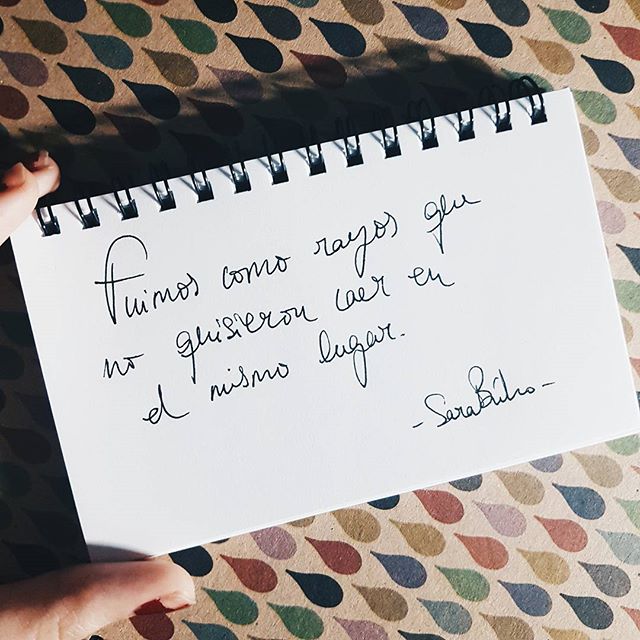 Fuimos como rayos que
no quisieron caer en
el mismo lugar.
- Sara Búho -